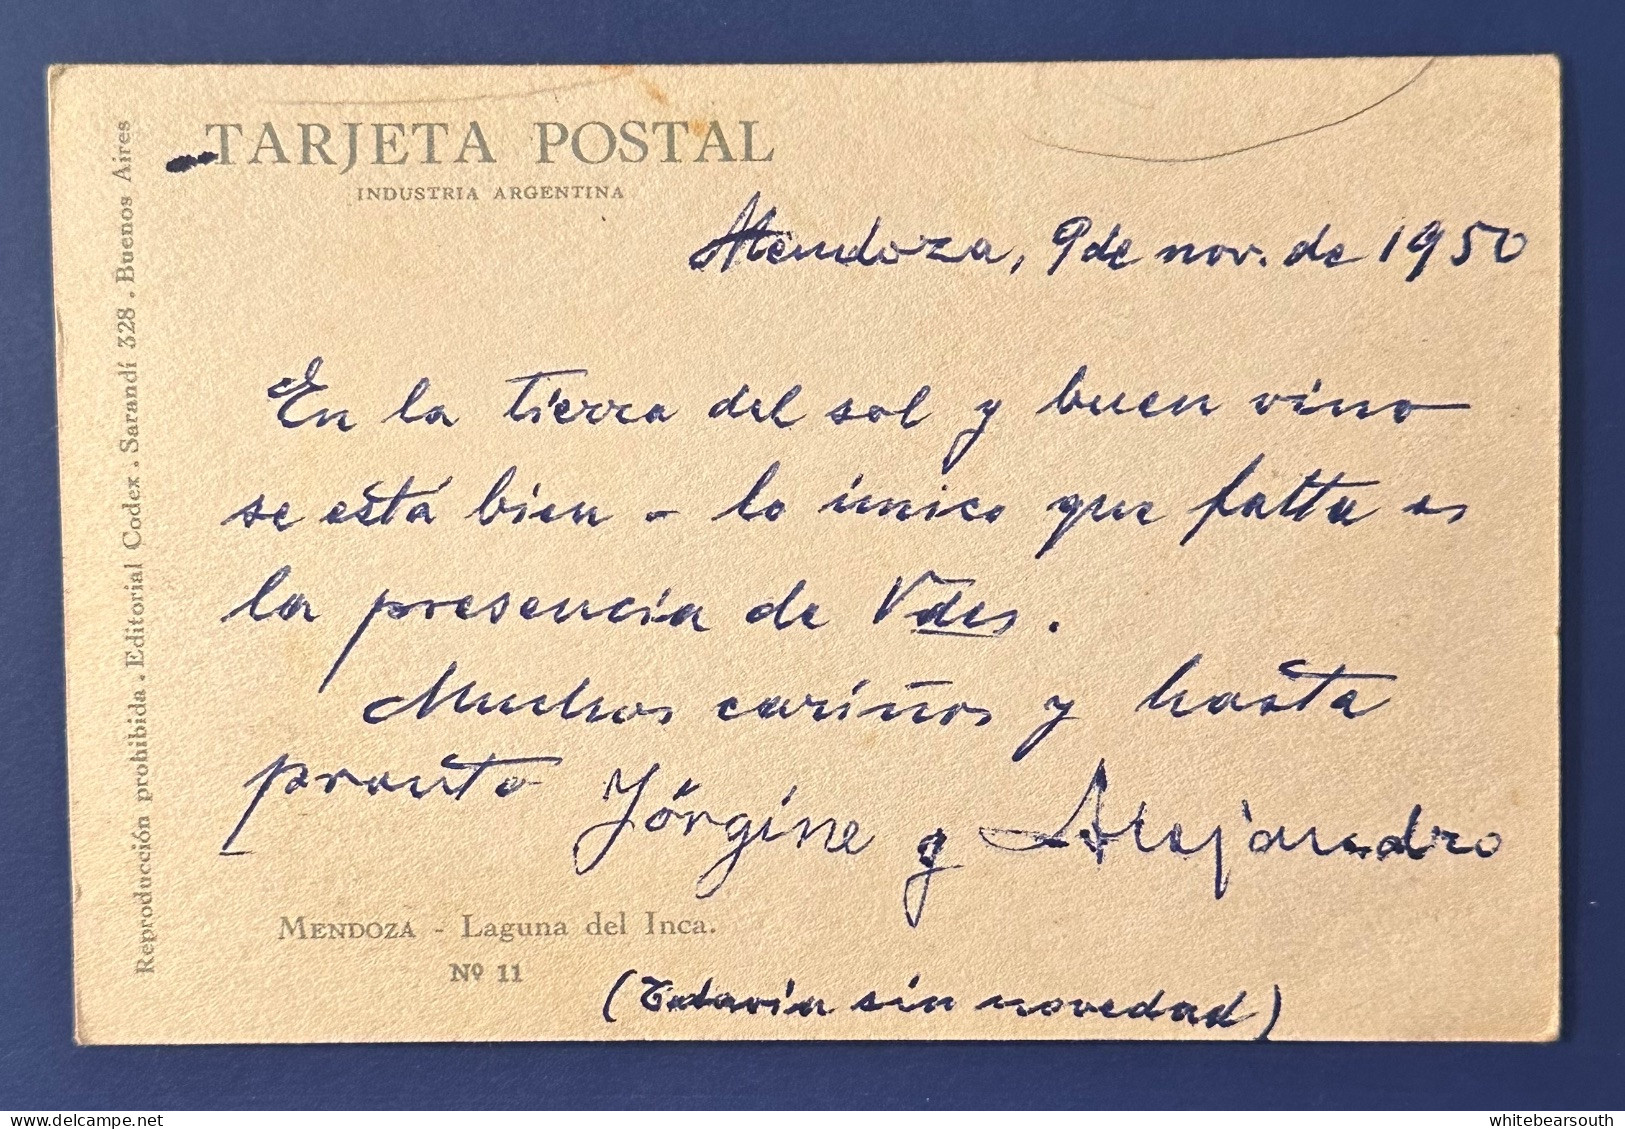 TARJETA POSTAL
INDUSTRIA ARGENTINA
Reproducción prohibida. Editorial Codex. Sarandí 328. Buenos Aires
Mendoza, 9 de nov. de 1950
En la tierra del sol y buen vino
se está bien - lo único que falta es
la presencia de Vdes.
Muchos cariños y hasta
pronto Jörgine y Alejandro
MENDOZA - Laguna del Inca.
Nº 11
(Todavía sin novedad)
whitebearsouth